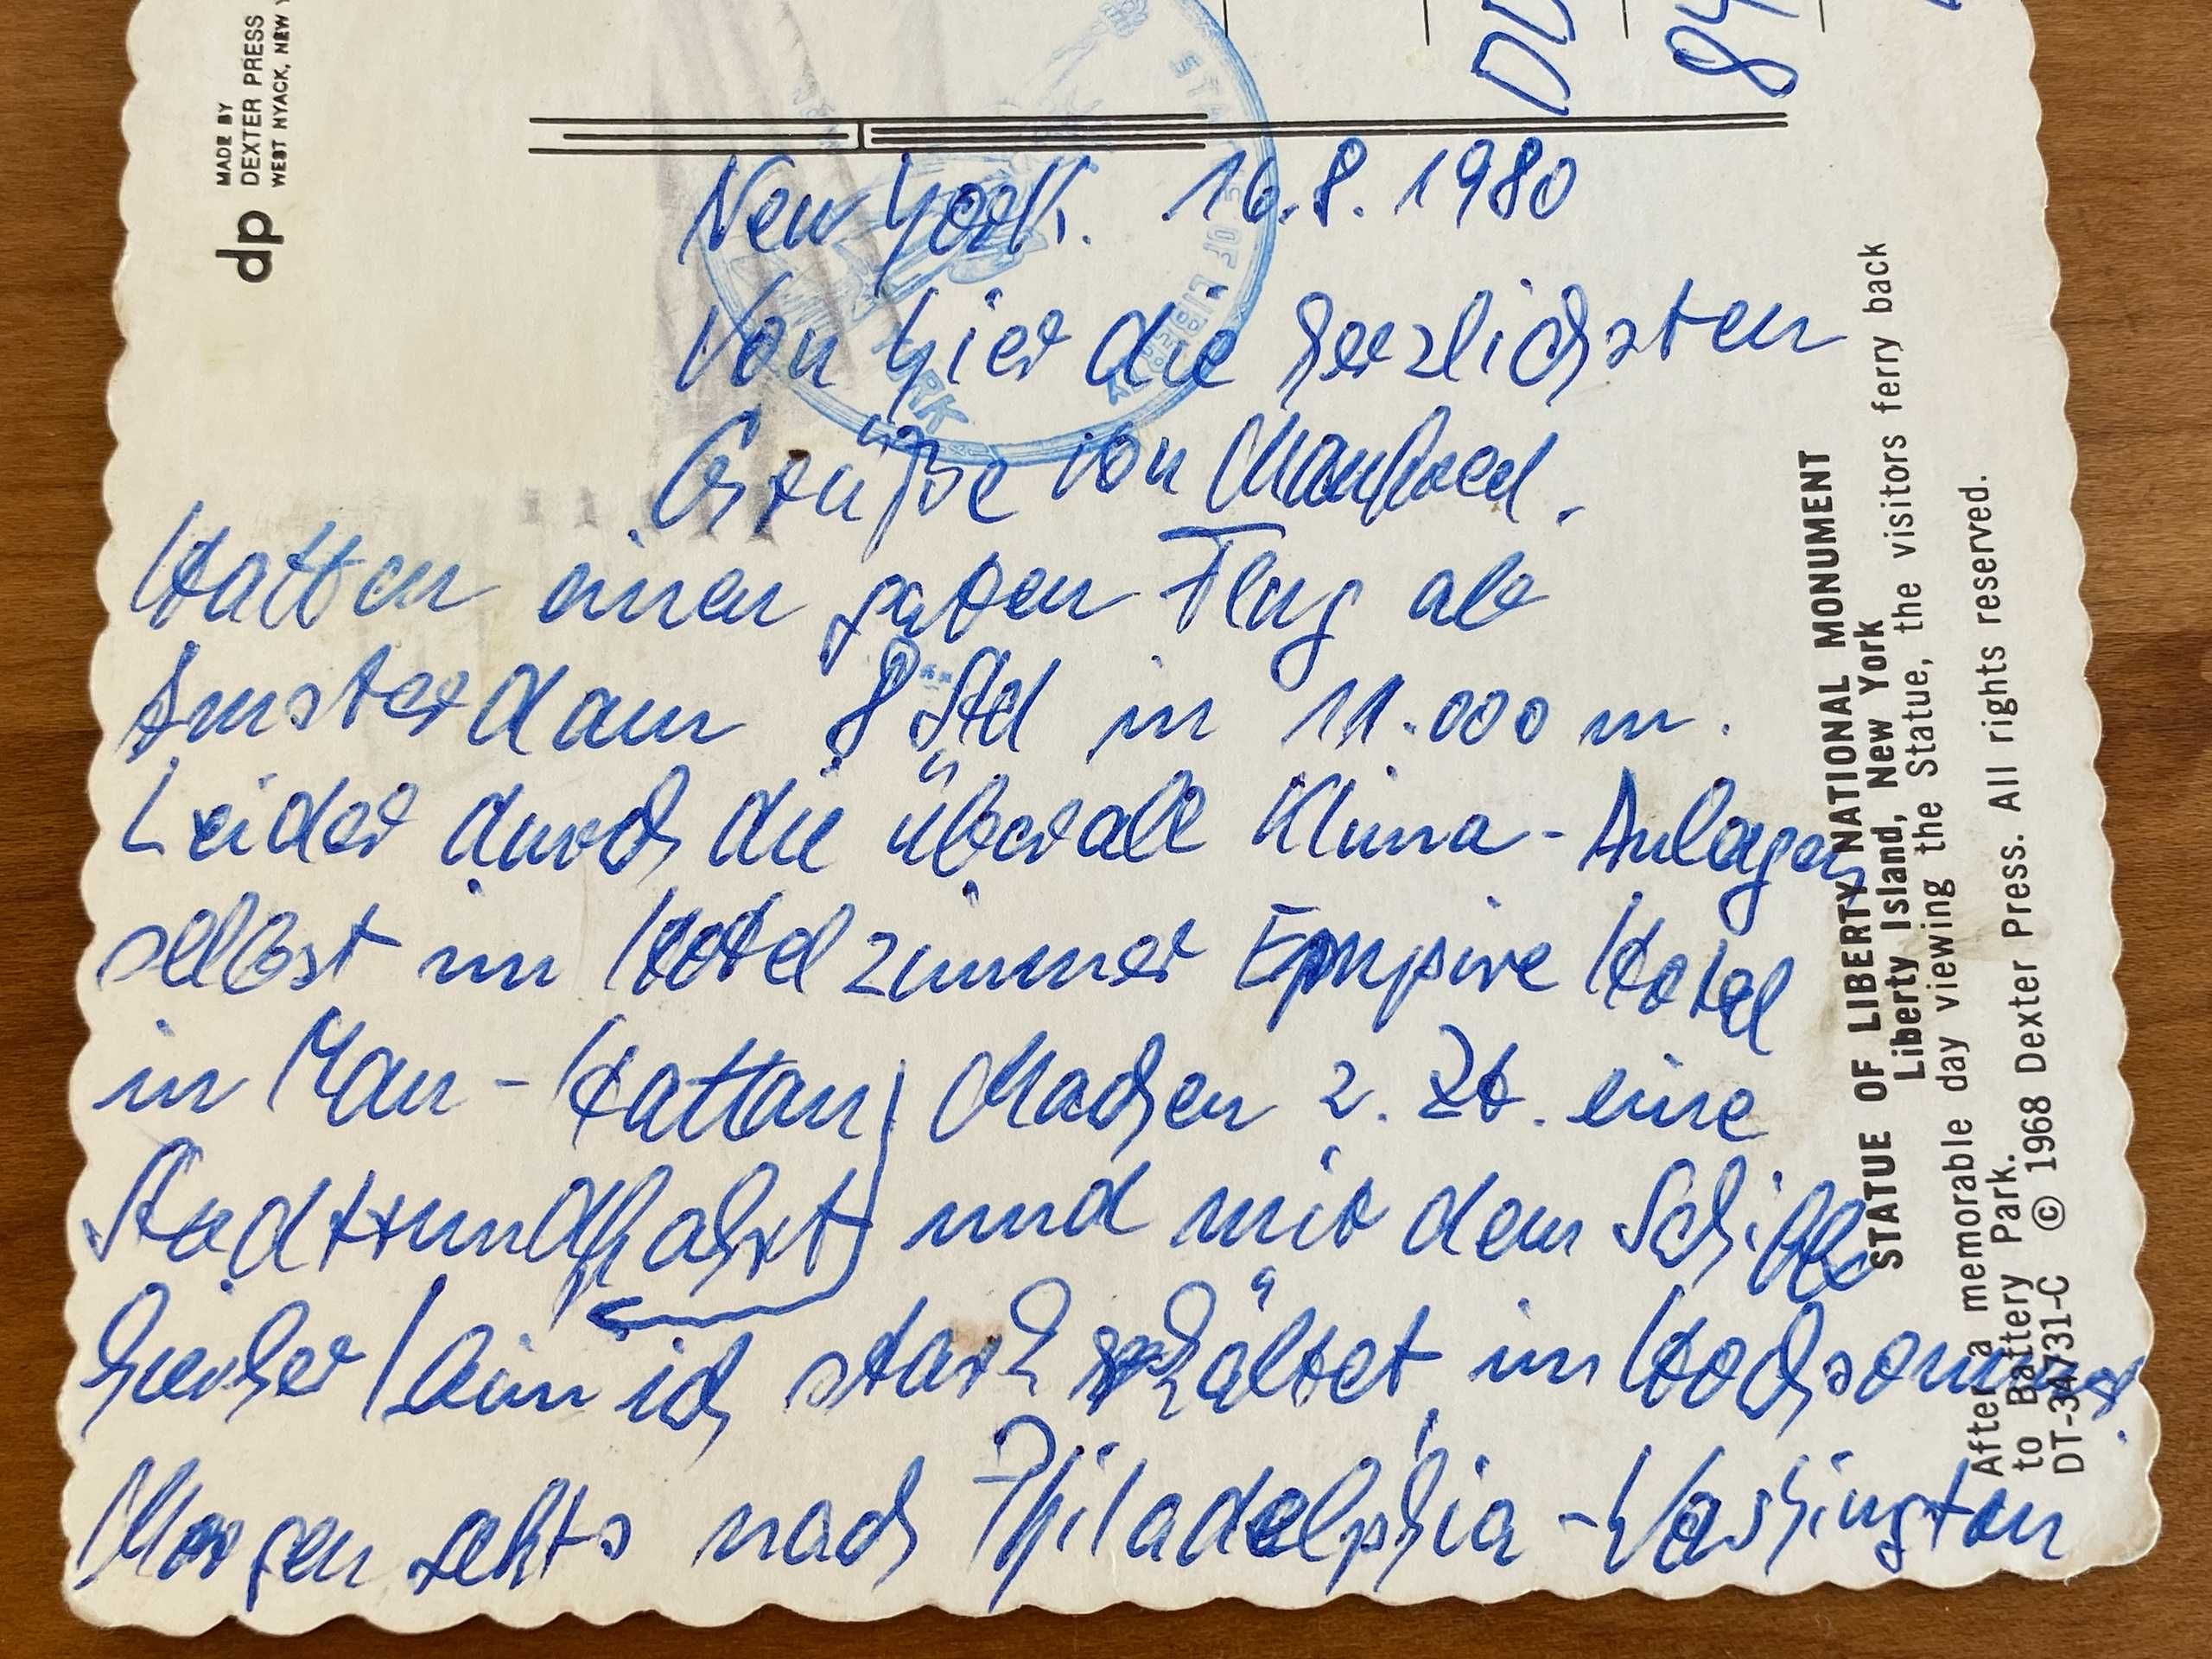 MADE BY
DEXTER PRESS
WEST NYACK, NEW
dp
STATUE OF LIBERTY
New York. 16.8.1980
Von hier die herzlichsten
Grüße von Manfred.
Hatten einen guten Flug ab
Amsterdam 8 Std in 11.000 m.
Leider durch die überall Klima-Anlagen
selbst im Hotelzimmer Empire Hotel
in Man-Hattan Machen z. Zt. eine
Stadtrundfahrt und mit dem Schiff
hierher / bin ich stark erkältet im Hochsommer.
Morgen gehts nach Philadelphia-Washington
STATUE OF LIBERTY NATIONAL MONUMENT
Liberty Island, New York
After a memorable day viewing the Statue, the visitors ferry back
to Battery Park.
DT-34731-C © 1968 Dexter Press. All rights reserved.